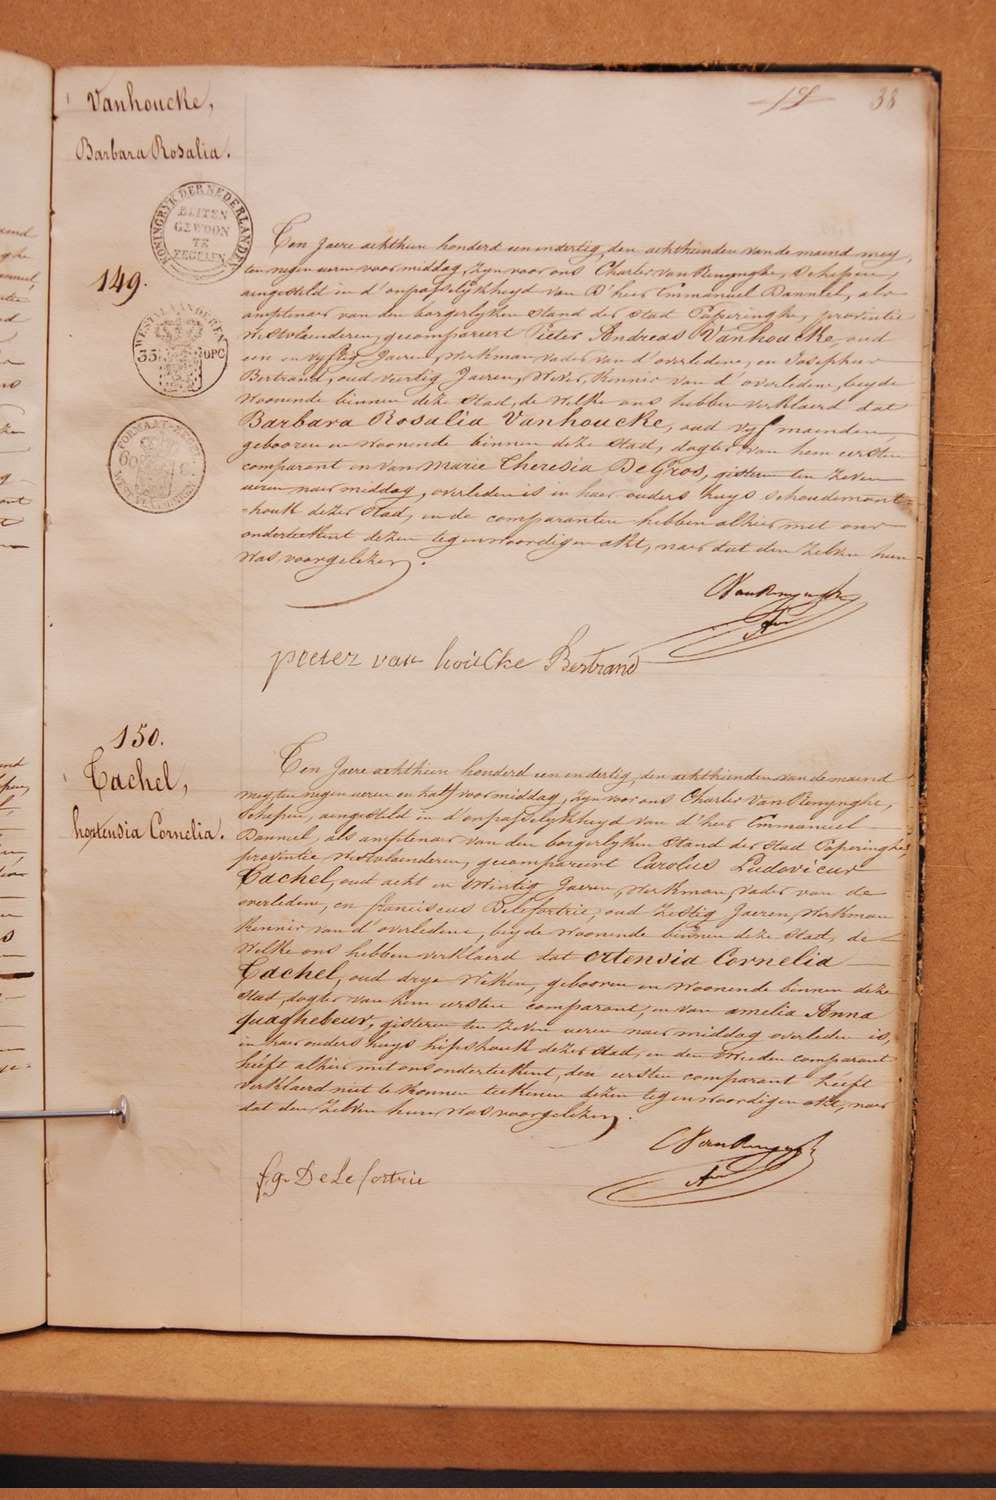 38
Vanhoucke,
Barbara Rosalia.
149.
KONINGRYK DER NEDERLANDEN
BUITEN
GEWOON
TE
ZEGELEN
WESTVLAANDEREN
35 OPC
FORMAAT-ZEGEL
Ten Jaere achthien honderd een endertig, den achthienden van de maend mey,
ten negen ueren voor middag, zyn voor ons Charles van Renynghe, Schepen,
aengesteld in d'onpasselykheyd van d'heer Emmanuel Danneel, als
amptenaer van den borgerlyken stand der stad Poperinghe, provintie
Westvlaenderen, gecompareert Pieter Andreas Vanhoucke, oud
een en vyftig Jaeren, Werkman, vader van d'overledene, en Josephus
Bertrand, oud veertig Jaeren, Wever, Kennis van d'overledene, beyde
woonende binnen deze Stad, de welke ons hebben verklaerd dat
Barbara Rosalia Vanhoucke, oud vyf maenden
gebooren en woonende binnen deze Stad, dogter van hem eersten
comparant en van Marie Theresia DeGros, gisteren ten zeven
ueren naer middag, overleden is in haer ouders huys schoudemont-
-houk dezer stad, en de comparanten hebben alhier met ons
onderteekent dezen tegenwoordigen akt, naer dat den zelven hun
was voorgelezen.
CVanRenynghe
pieter van houcke Bertrand
150.
Cachel,
hortensia Cornelia.
Ten Jaere achthien honderd een endertig, den achthienden van de maend
mey, ten negen ueren en half voor middag, zyn voor ons Charles van Renynghe,
Schepen, aengesteld in d'onpasselykheyd van d'heer Emmanuel
Danneel, als amptenaer van den borgerlyken Stand der Stad Poperinghe,
provintie Westvlaenderen, gecompareert Carolus Ludovicus
Cachel, oud acht en twintig Jaeren, Werkman, vader van de
overledene, en franciscus Delefortrie, oud zestig Jaeren, Werkman
Kennis van d'overledene, beyde woonende binnen deze Stad, de
welke ons hebben verklaerd dat ortensia Cornelia
Cachel, oud drye weken, gebooren en woonende binnen deze
stad, dogter van hem eersten comparant, en van amelia Anna
quaghebeur, gisteren ten zeven ueren naer middag overleden is,
in haer ouders huys hipshouk dezer stad, en den tweeden comparant
heeft alhier met ons onderteekent, den eersten comparant heeft
verklaerd niet te konnen teekenen dezen tegenwoordigen akt, naer
dat den zelven hun was voorgelezen.
CVanRenynghe
f.g. DeLefortrie